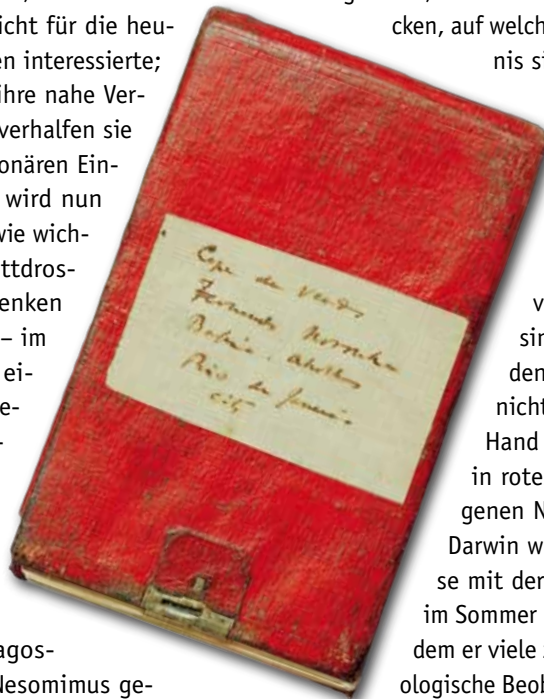 icht für die heu-
en interessierte;
ihre nahe Ver-
verhalfen sie
onären Ein-
wird nun
wie wich-
ttdros-
enken
– im
ei-
e-
-
agos-
Nesomimus ge-
Cape de Verds
Fernando Noronha
Bahia. Abrolhos
Rio de Janeiro
cken, auf welch
nis si
v
sin
den
nicht
Hand
in rote
genen N
Darwin w
se mit der
im Sommer
dem er viele
ologische Beob